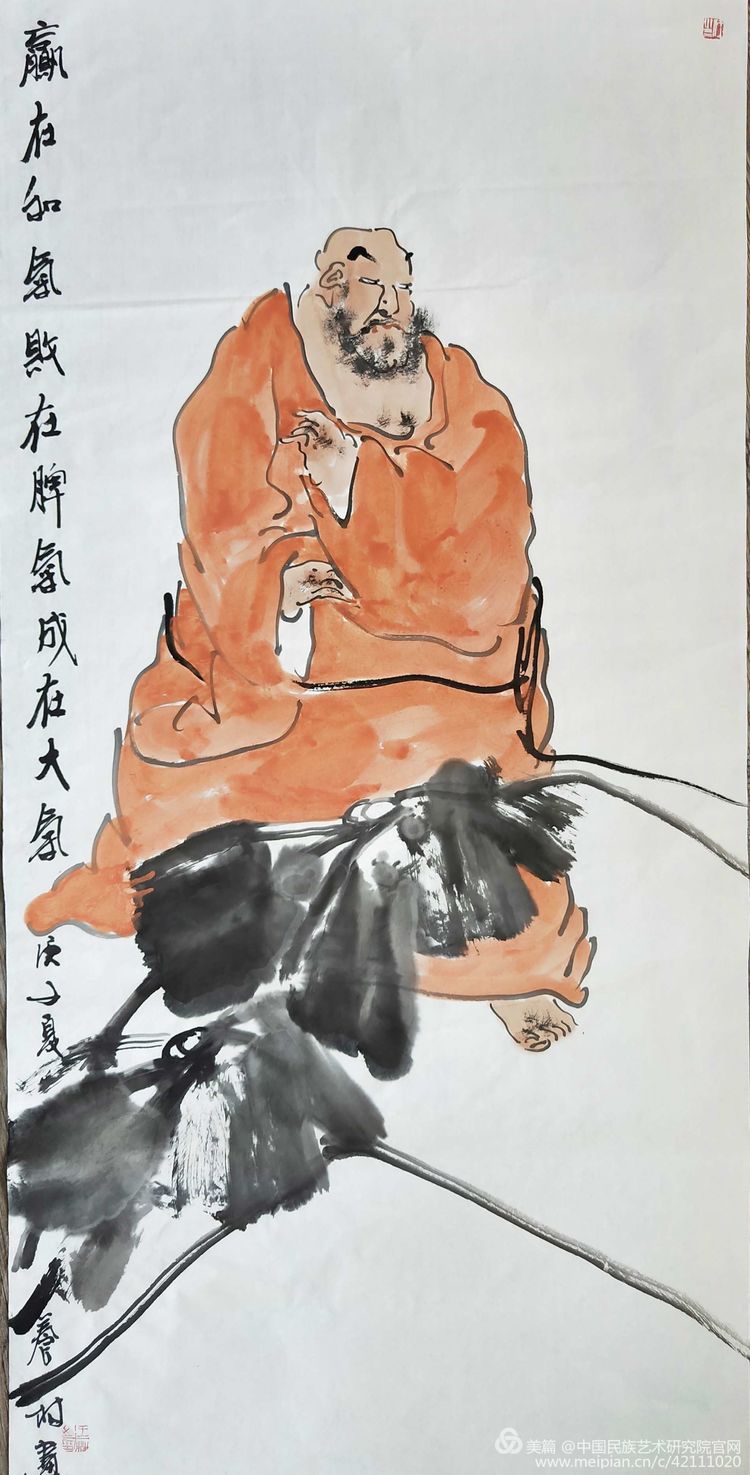 赢在和氣敗在脾氣成在大氣
庚子夏
春村畫
美篇 @中国民族艺术研究院官网
www.meipian.cn/c/42111020